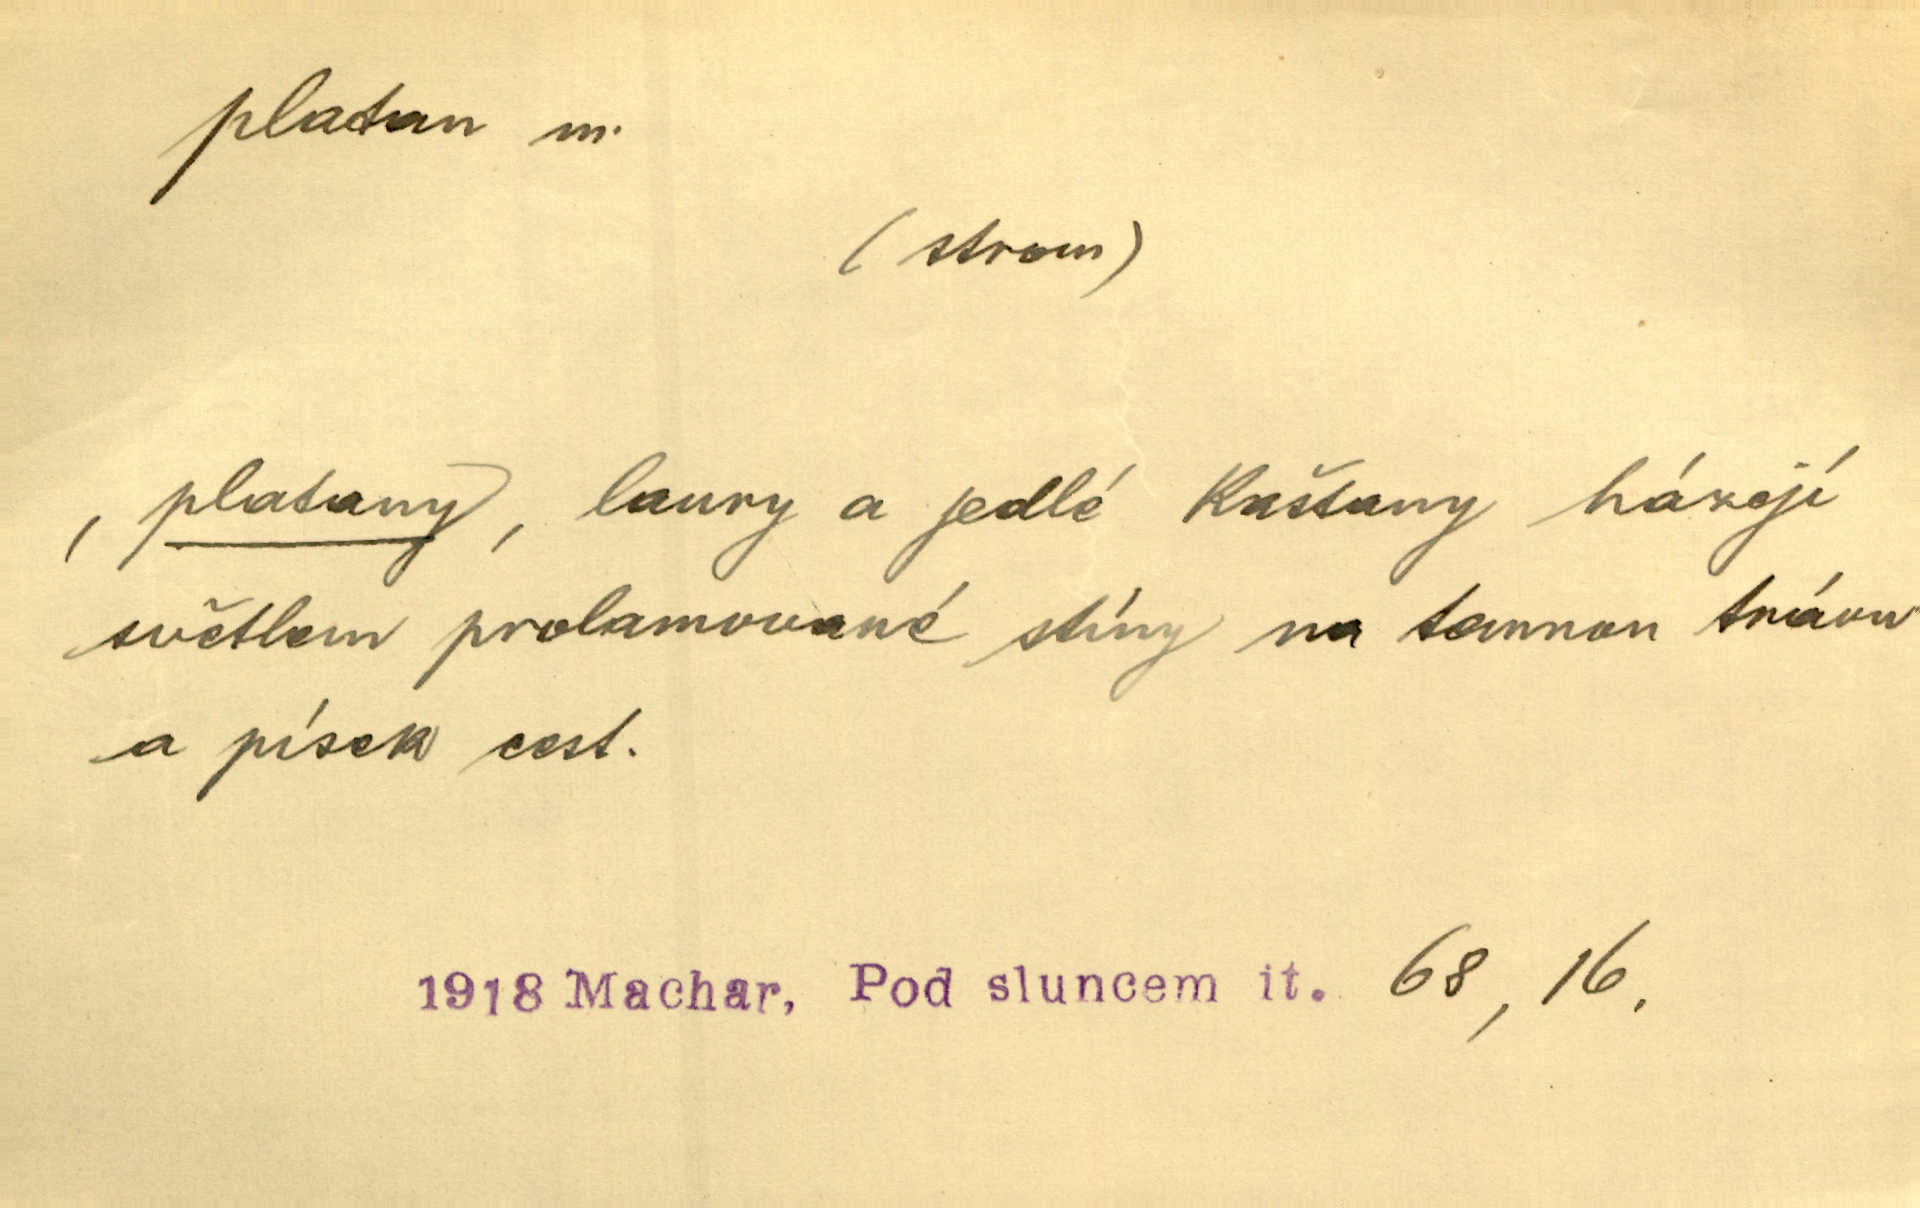 platan m.
(strom)
, platany, laury a jedlé kaštany házejí
světlem prolamované stíny na temnou trávu
a písek cest.
1918 Machar, Pod sluncem it. 68, 16.